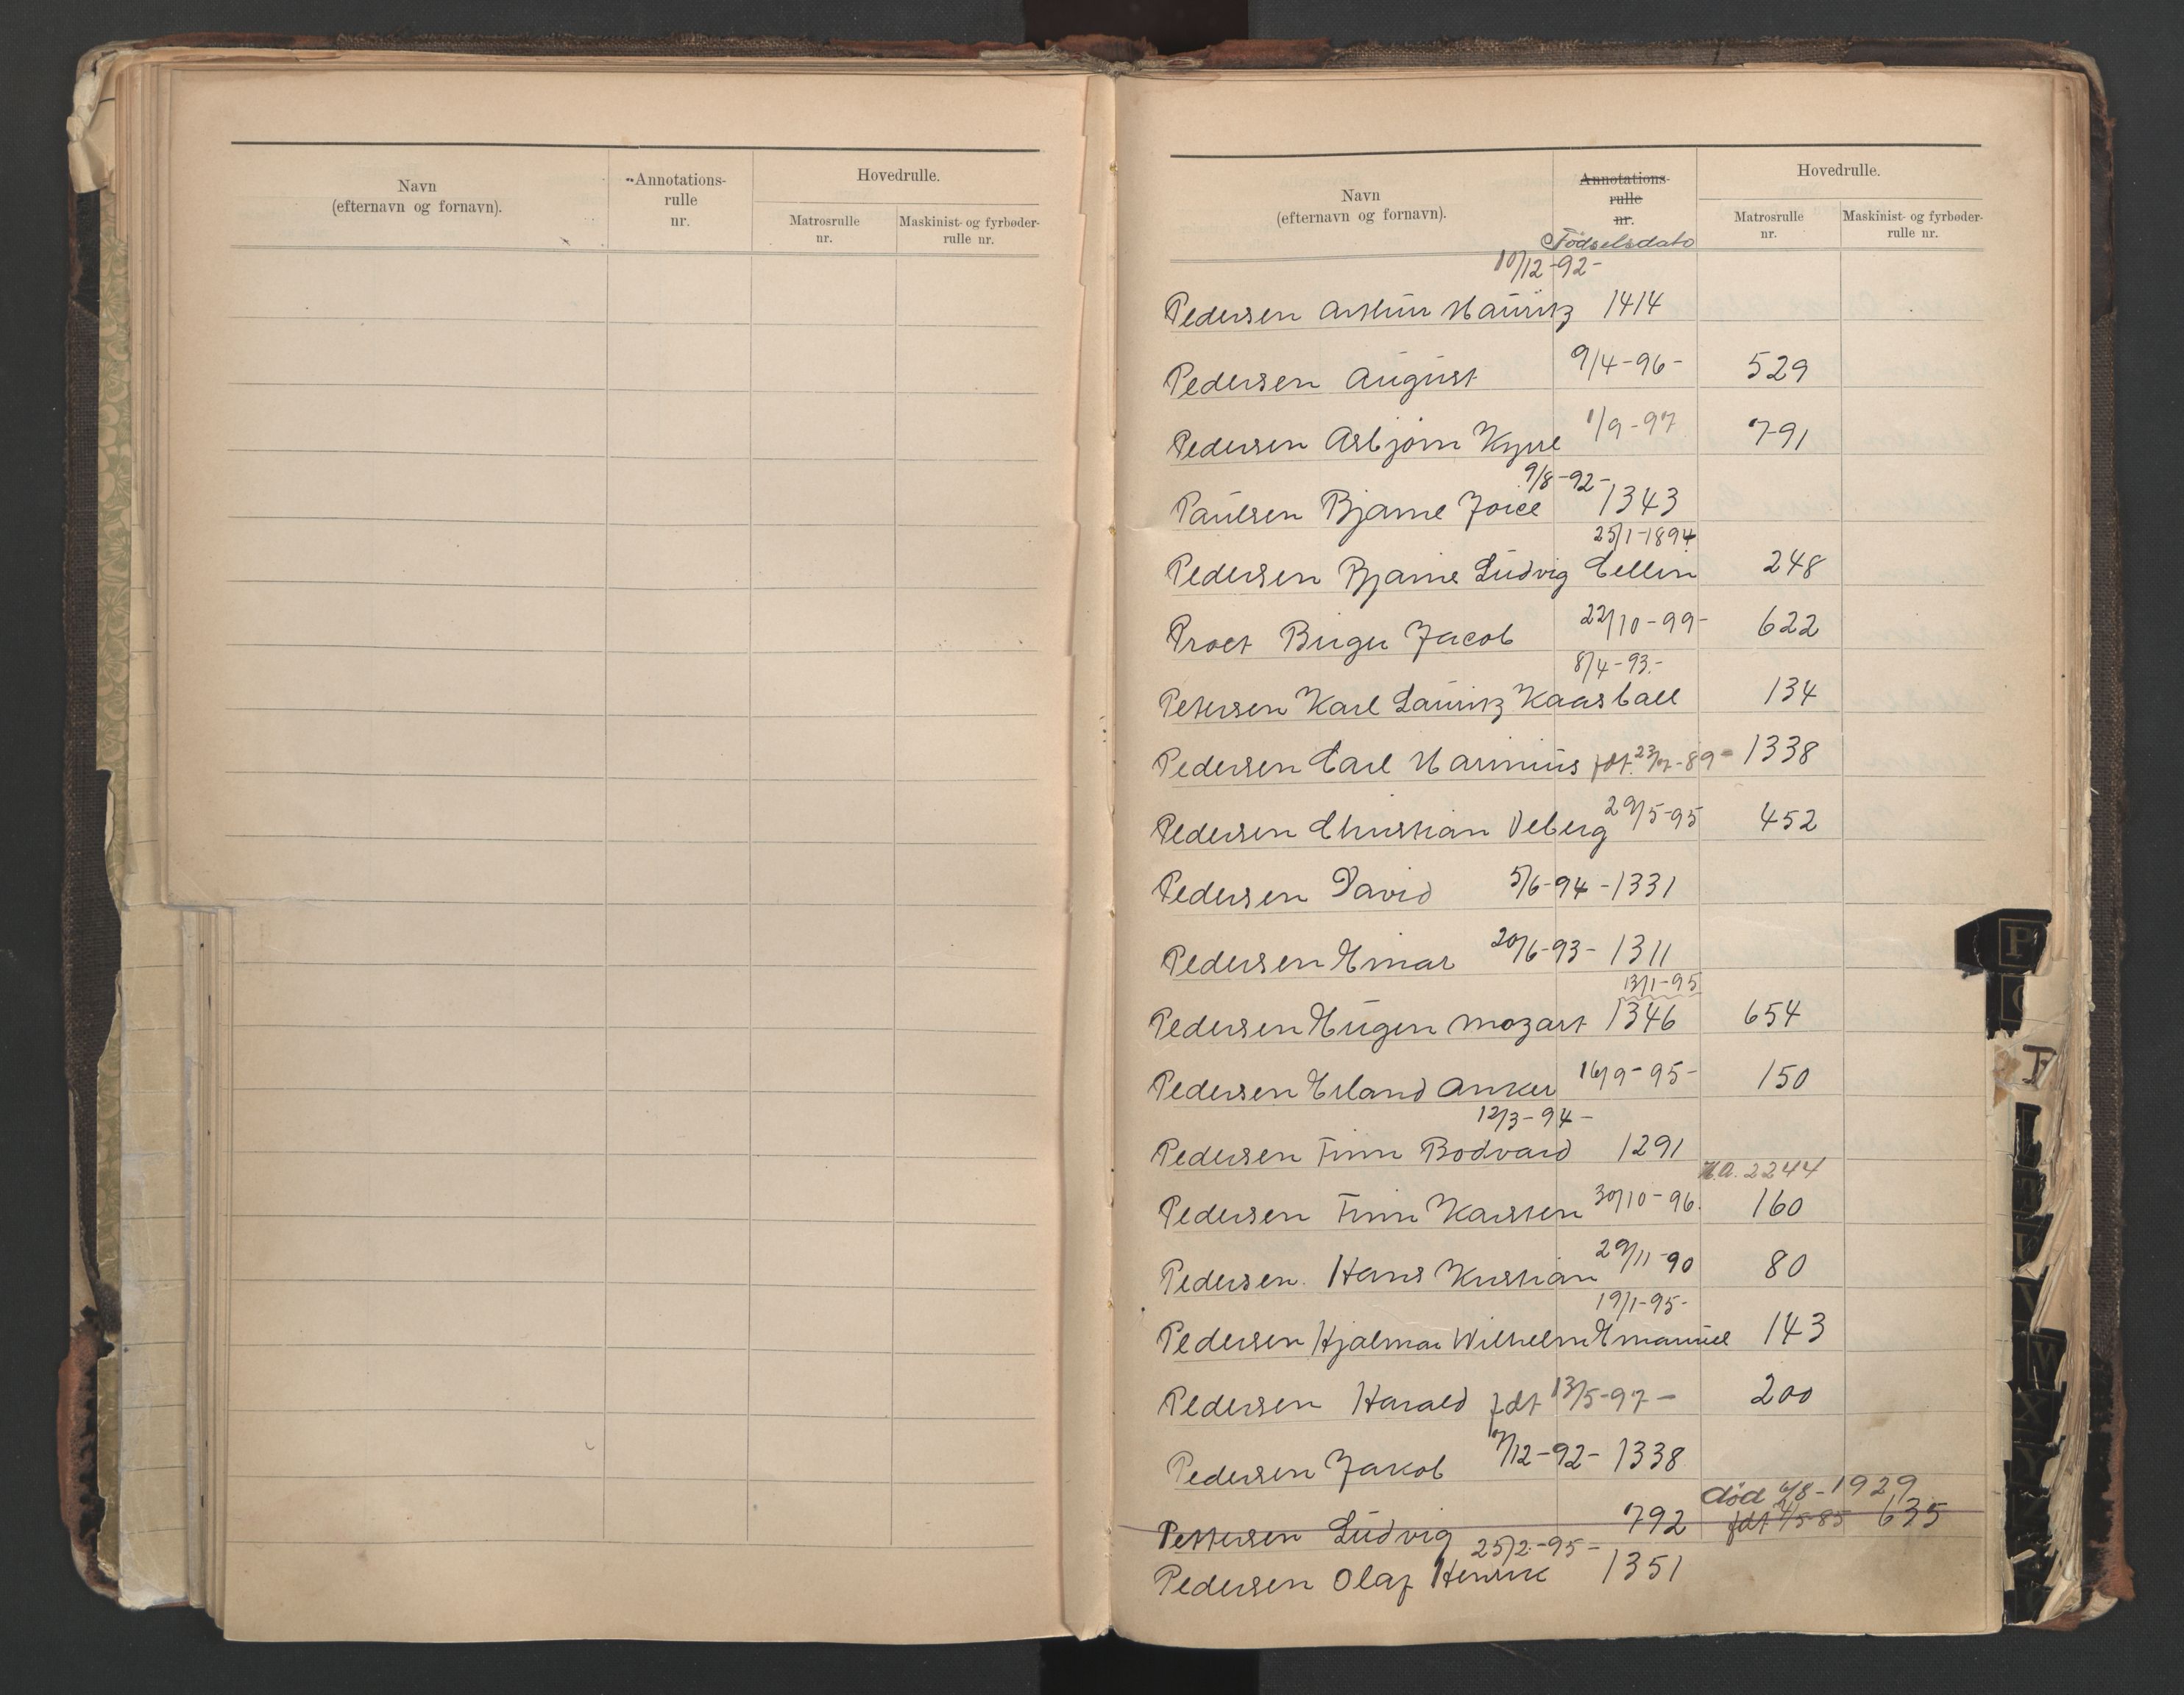 Navn
(efternavn og fornavn).
Annotations-
rulle
nr.
Hovedrulle.
Matrosrulle
nr.
Maskinist- og fyrbøder-
rulle nr.
Navn
(efternavn og fornavn).
Annotations-
rulle
nr.
Fødselsdato
Hovedrulle.
Matrosrulle
nr.
Maskinist- og fyrbøder-
rulle nr.
10/12-92-
Pedersen Arthur Mauritz 1414
Pedersen August 9/4-96- 529
Pedersen Asbjørn Kyrre 1/9-97 791
9/8-92-
Paulsen Bjarne Joice 1343
25/1-1894
Pedersen Bjarne Ludvig Cellin 248
Proet Birger Jacob 22/10-99- 622
8/4-93.-
Petersen Karl Lauritz Kaasball 134
Pedersen Carl Marinius fdt. 23/7-89- 1338
Pedersen Christian Veberg 29/5-95 452
Pedersen David 5/6-94-1331
Pedersen Einar 20/6-93- 1311
13/1-95
Pedersen Eugen Mozart 1346 654
Pedersen Erland Anker 16/9-95- 150
12/3-94-
Pedersen Finn Bodvard 1291
H.A. 2244
Pedersen Finn Karsten 30/10-96. 160
Pedersen. Hans Kristian 29/11-90 80
19/1-95-
Pedersen Hjalmar Wilhelm Emanuel 143
Pedersen Harald fdt 13/5-97- 200
Pedersen Jakob 7/12-92- 1338
død 6/8-1929
Pettersen Ludvig 792 fdt 4/5-85 635
25/2-95-
Pedersen Olaf Henrik 1351
P
L
V
W
X